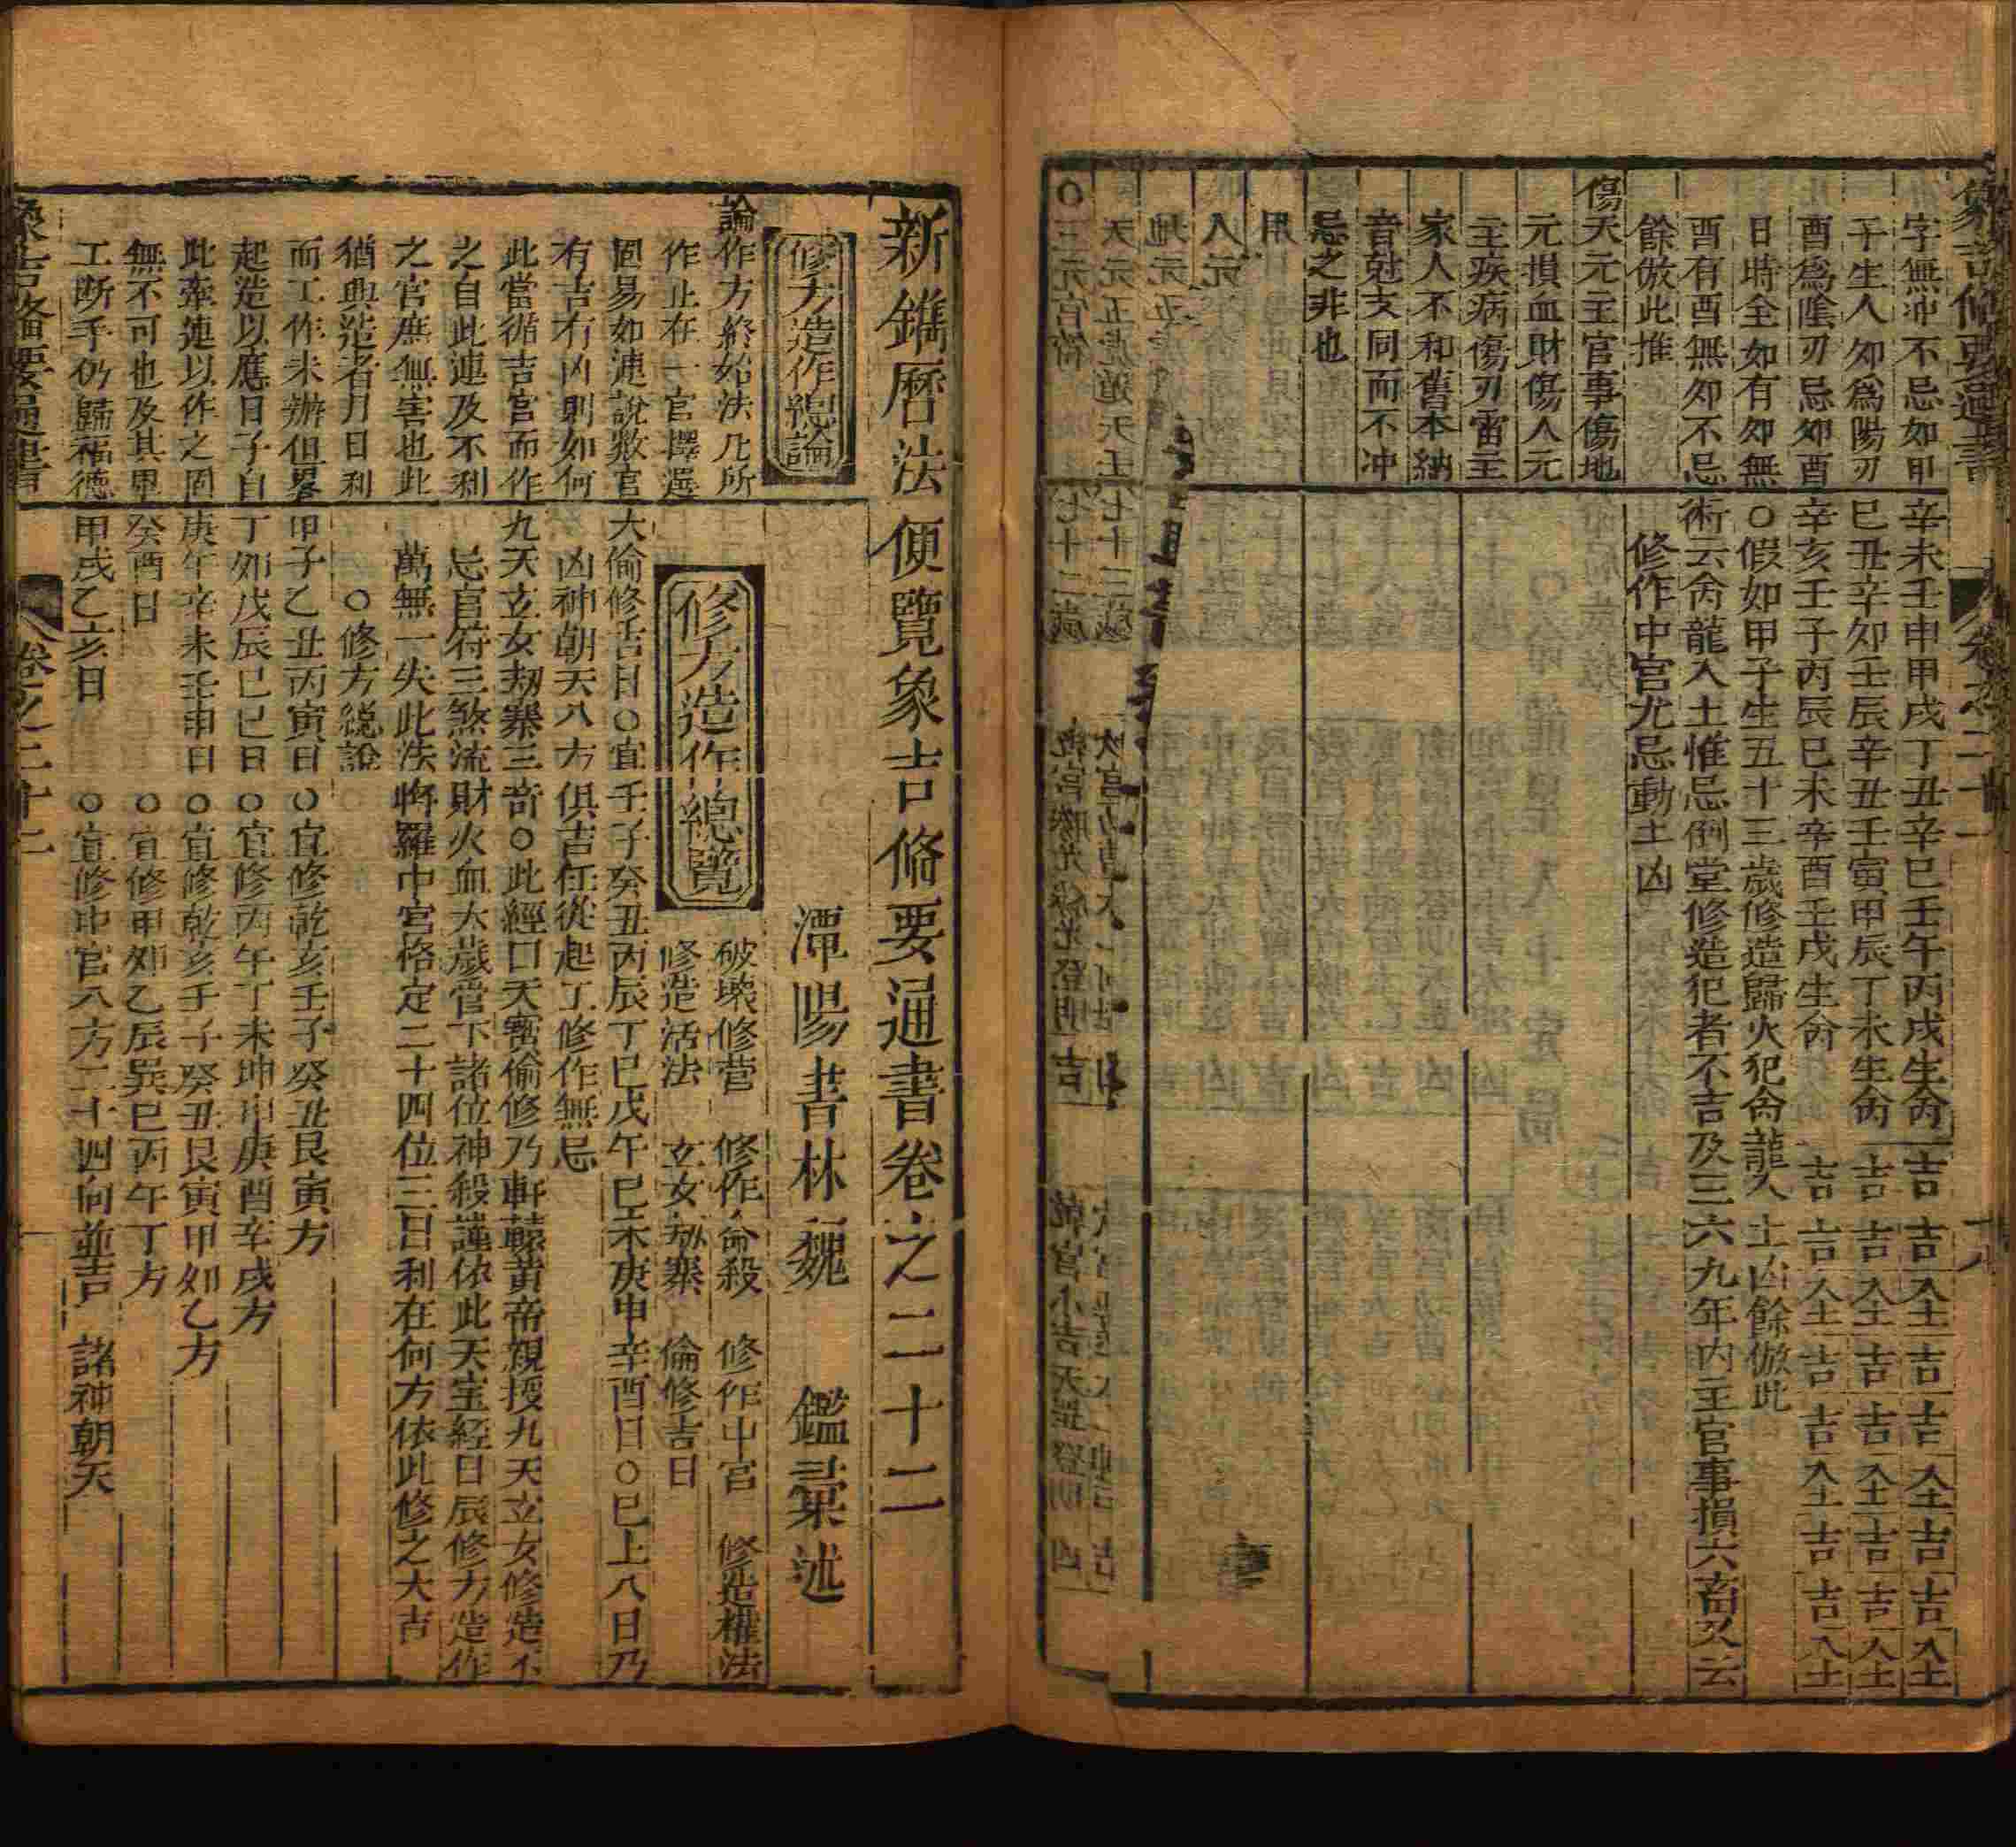 字無冲不忌如甲
干生人卯爲陽刃
酉爲陰刃忌卯酉
日時全如有卯無
酉有酉無卯不忌
餘倣此推
傷天元主官事傷地
元損血財傷人元
主疾病傷刃雷主
家人不和舊本納
音尅支同而不冲
忌之非也
辛未壬申甲戌丁丑辛巳壬午丙戌生命吉吉入土吉吉入土吉吉入土
巳丑辛卯壬辰辛丑壬寅甲辰丁未生命吉吉入土吉吉入土吉吉入土
辛亥壬子丙辰巳未辛酉壬戌生命吉吉入土吉吉入土吉吉入土
○假如甲子生五十三歲修造歸火犯命龍入土凶餘倣此
術云命龍入土惟忌倒堂修造犯者不吉及三六九年內主官事損六畜又云
修作中宮尤忌動土凶
新鐫曆法便覽象吉俻要通書卷之二十二
潭陽書林 魏 鑑彚述
修方造作總論
論作方終始法凡所
作止在一官擇選
固易如連說數宮
有吉有凶則如何
此當循吉宮而作
之自此連及不利
之官庶無害也此
猶興造者月日利
而工作未辦但畧
起造以應日子自
此牽連以作之固
無不可也及其畢
工断手仍歸福德
修方造作總覽
破壞修營 修作命殺 修作中宮 修造權法
修造活法 立女刼寨 倫修吉日
大偷修吉日○宜壬子癸丑丙辰丁巳戊午巳未庚申辛酉日○巳上八日乃
凶神朝天八方俱吉任從起工修作無忌
九天玄女刼寨三竒○此經曰天寳偷修乃軒轅黃帝親授九天玄女修造不
忌官符三煞流財火血太歲管下諸位神殺謹依此天宝經日辰修方造作
萬無一失此法將羅中宮格定二十四位三日利在何方依此修之大吉
○修方總說
甲子乙丑丙寅日○宜修乾亥壬子癸丑艮寅方
丁卯戊辰巳巳日○宜修丙午丁未坤申庚酉辛戌方
庚午辛未壬申日○宜修乾亥壬子癸丑艮寅甲卯乙方
癸酉日○宜修甲卯乙辰巽巳丙午丁方
甲戌乙亥日○宜修中官八方二十四向並吉 諸神朝天
卷之二十二